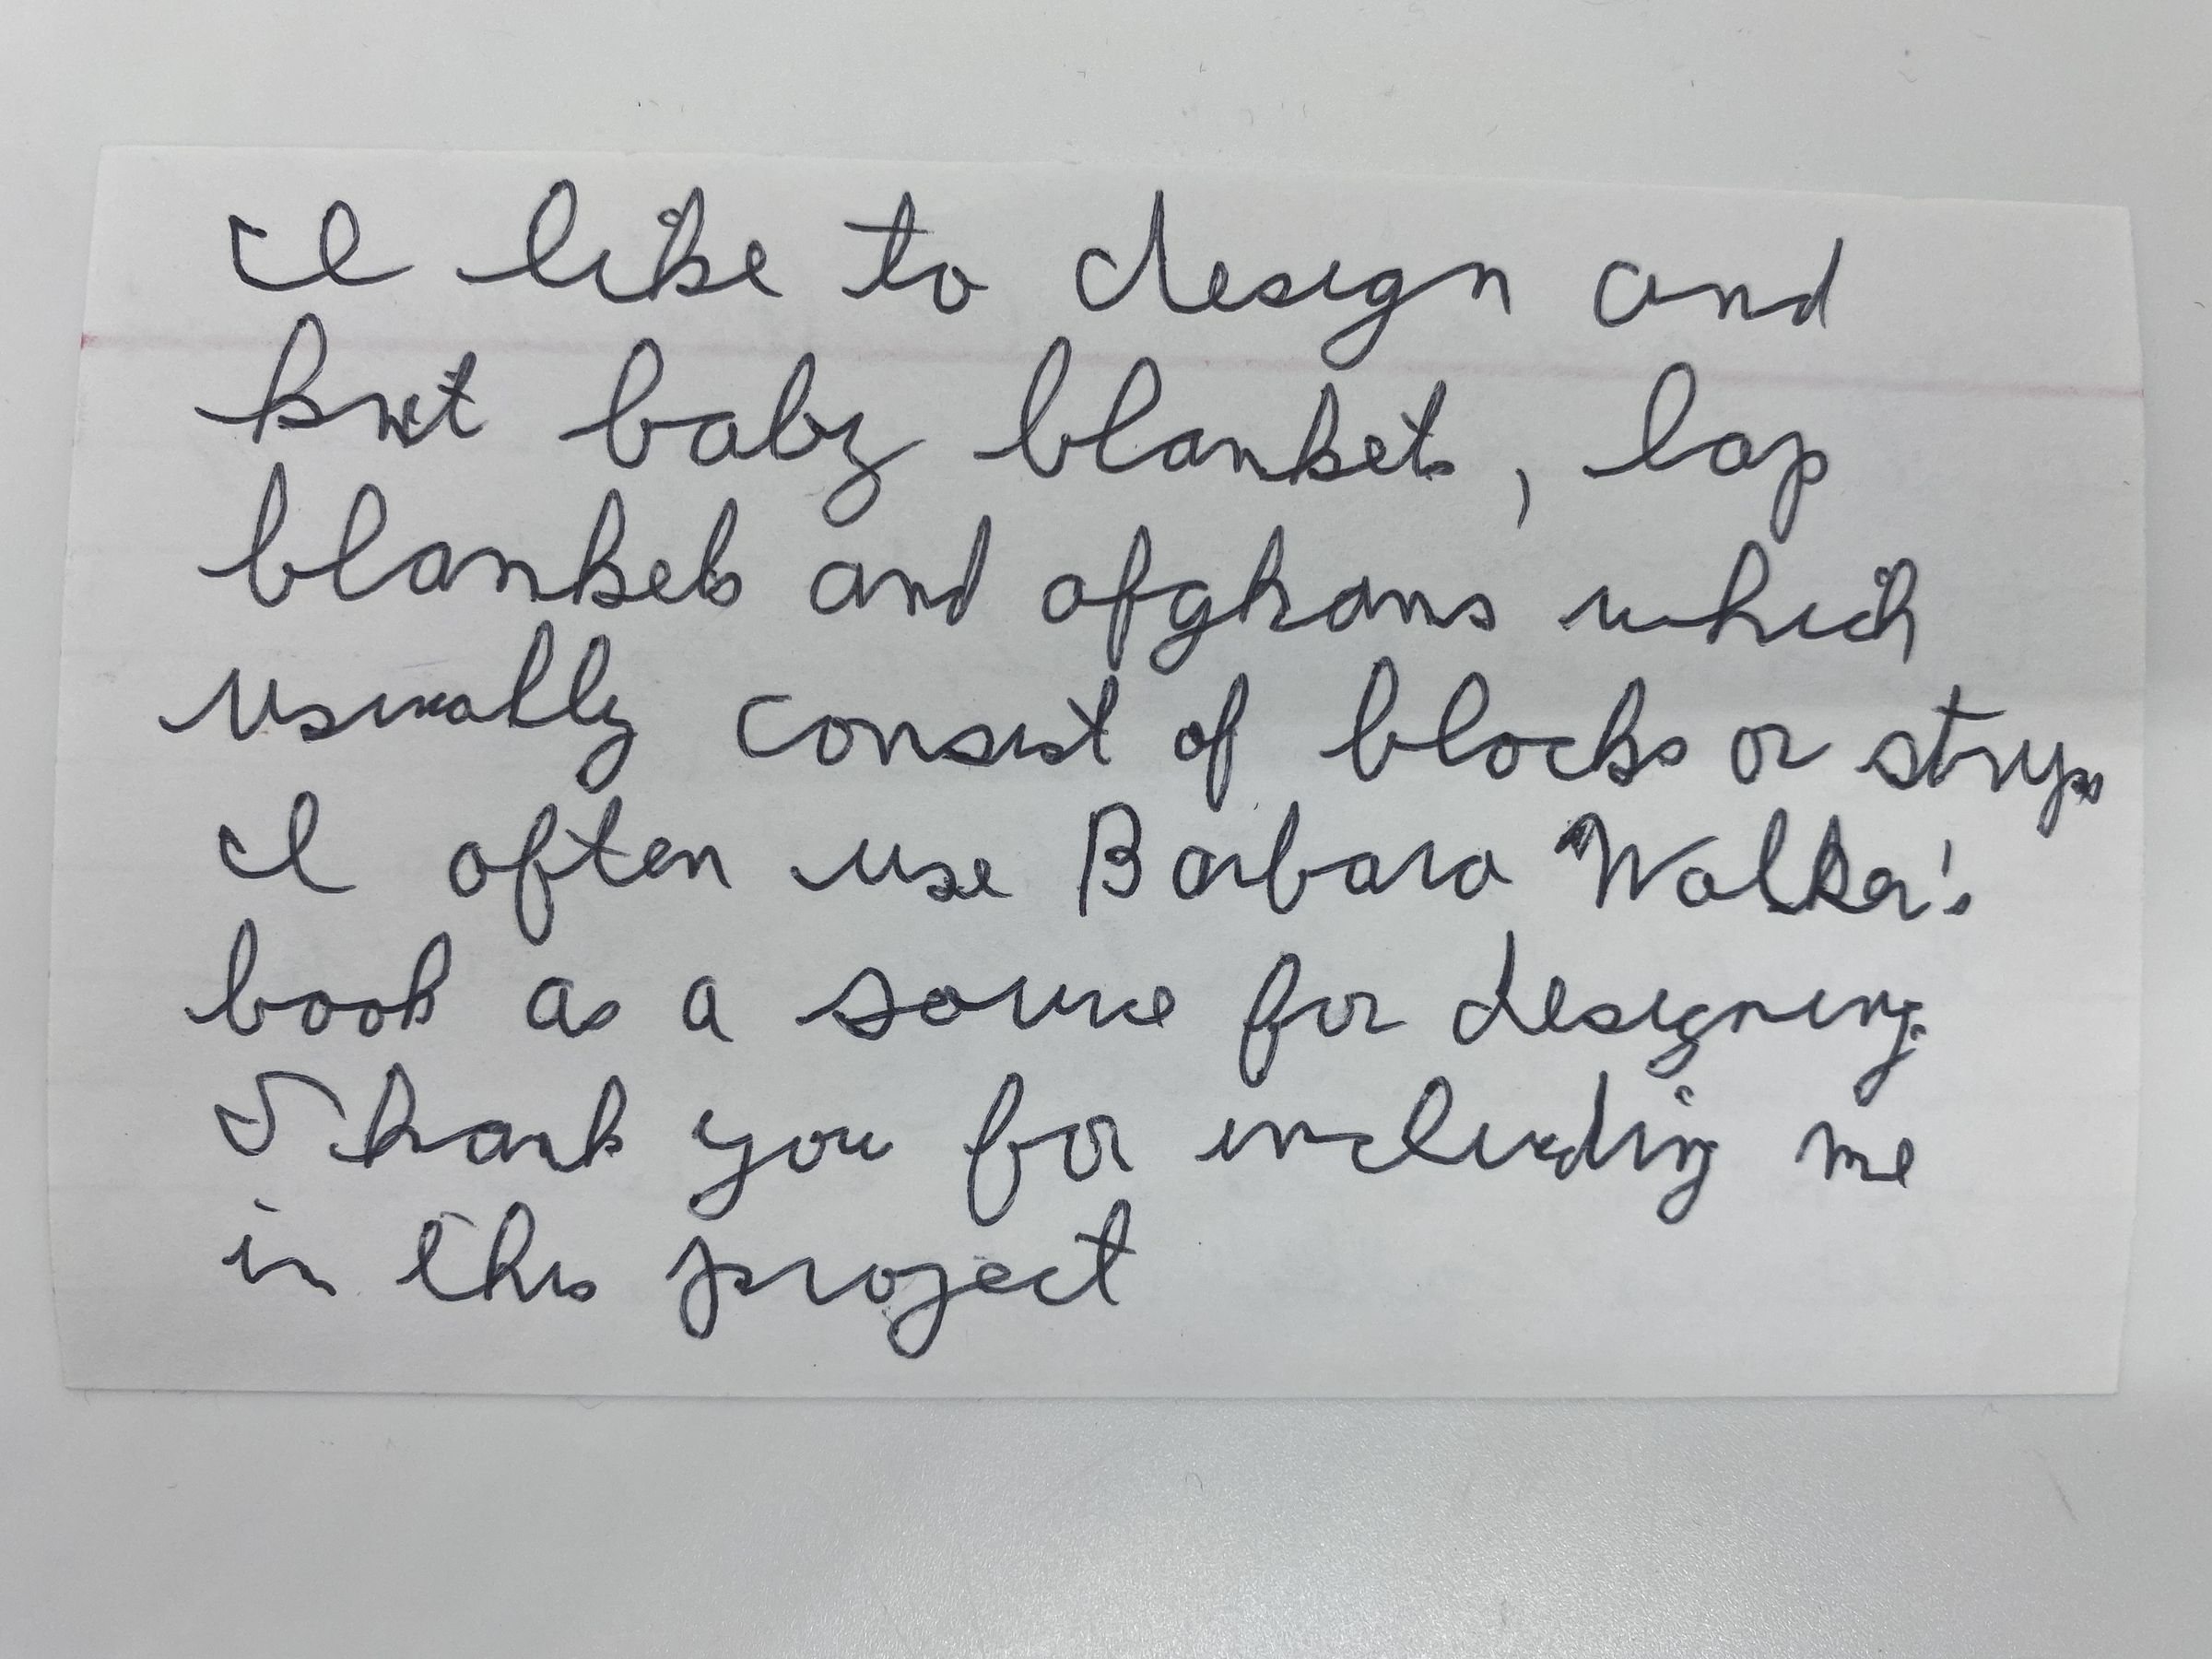 I like to design and
knit baby blankets, lap
blankets and afghans which
usually consist of blocks or strips
I often use Barbara Walker's
book as a source for designing.
Thank you for including me
in this project